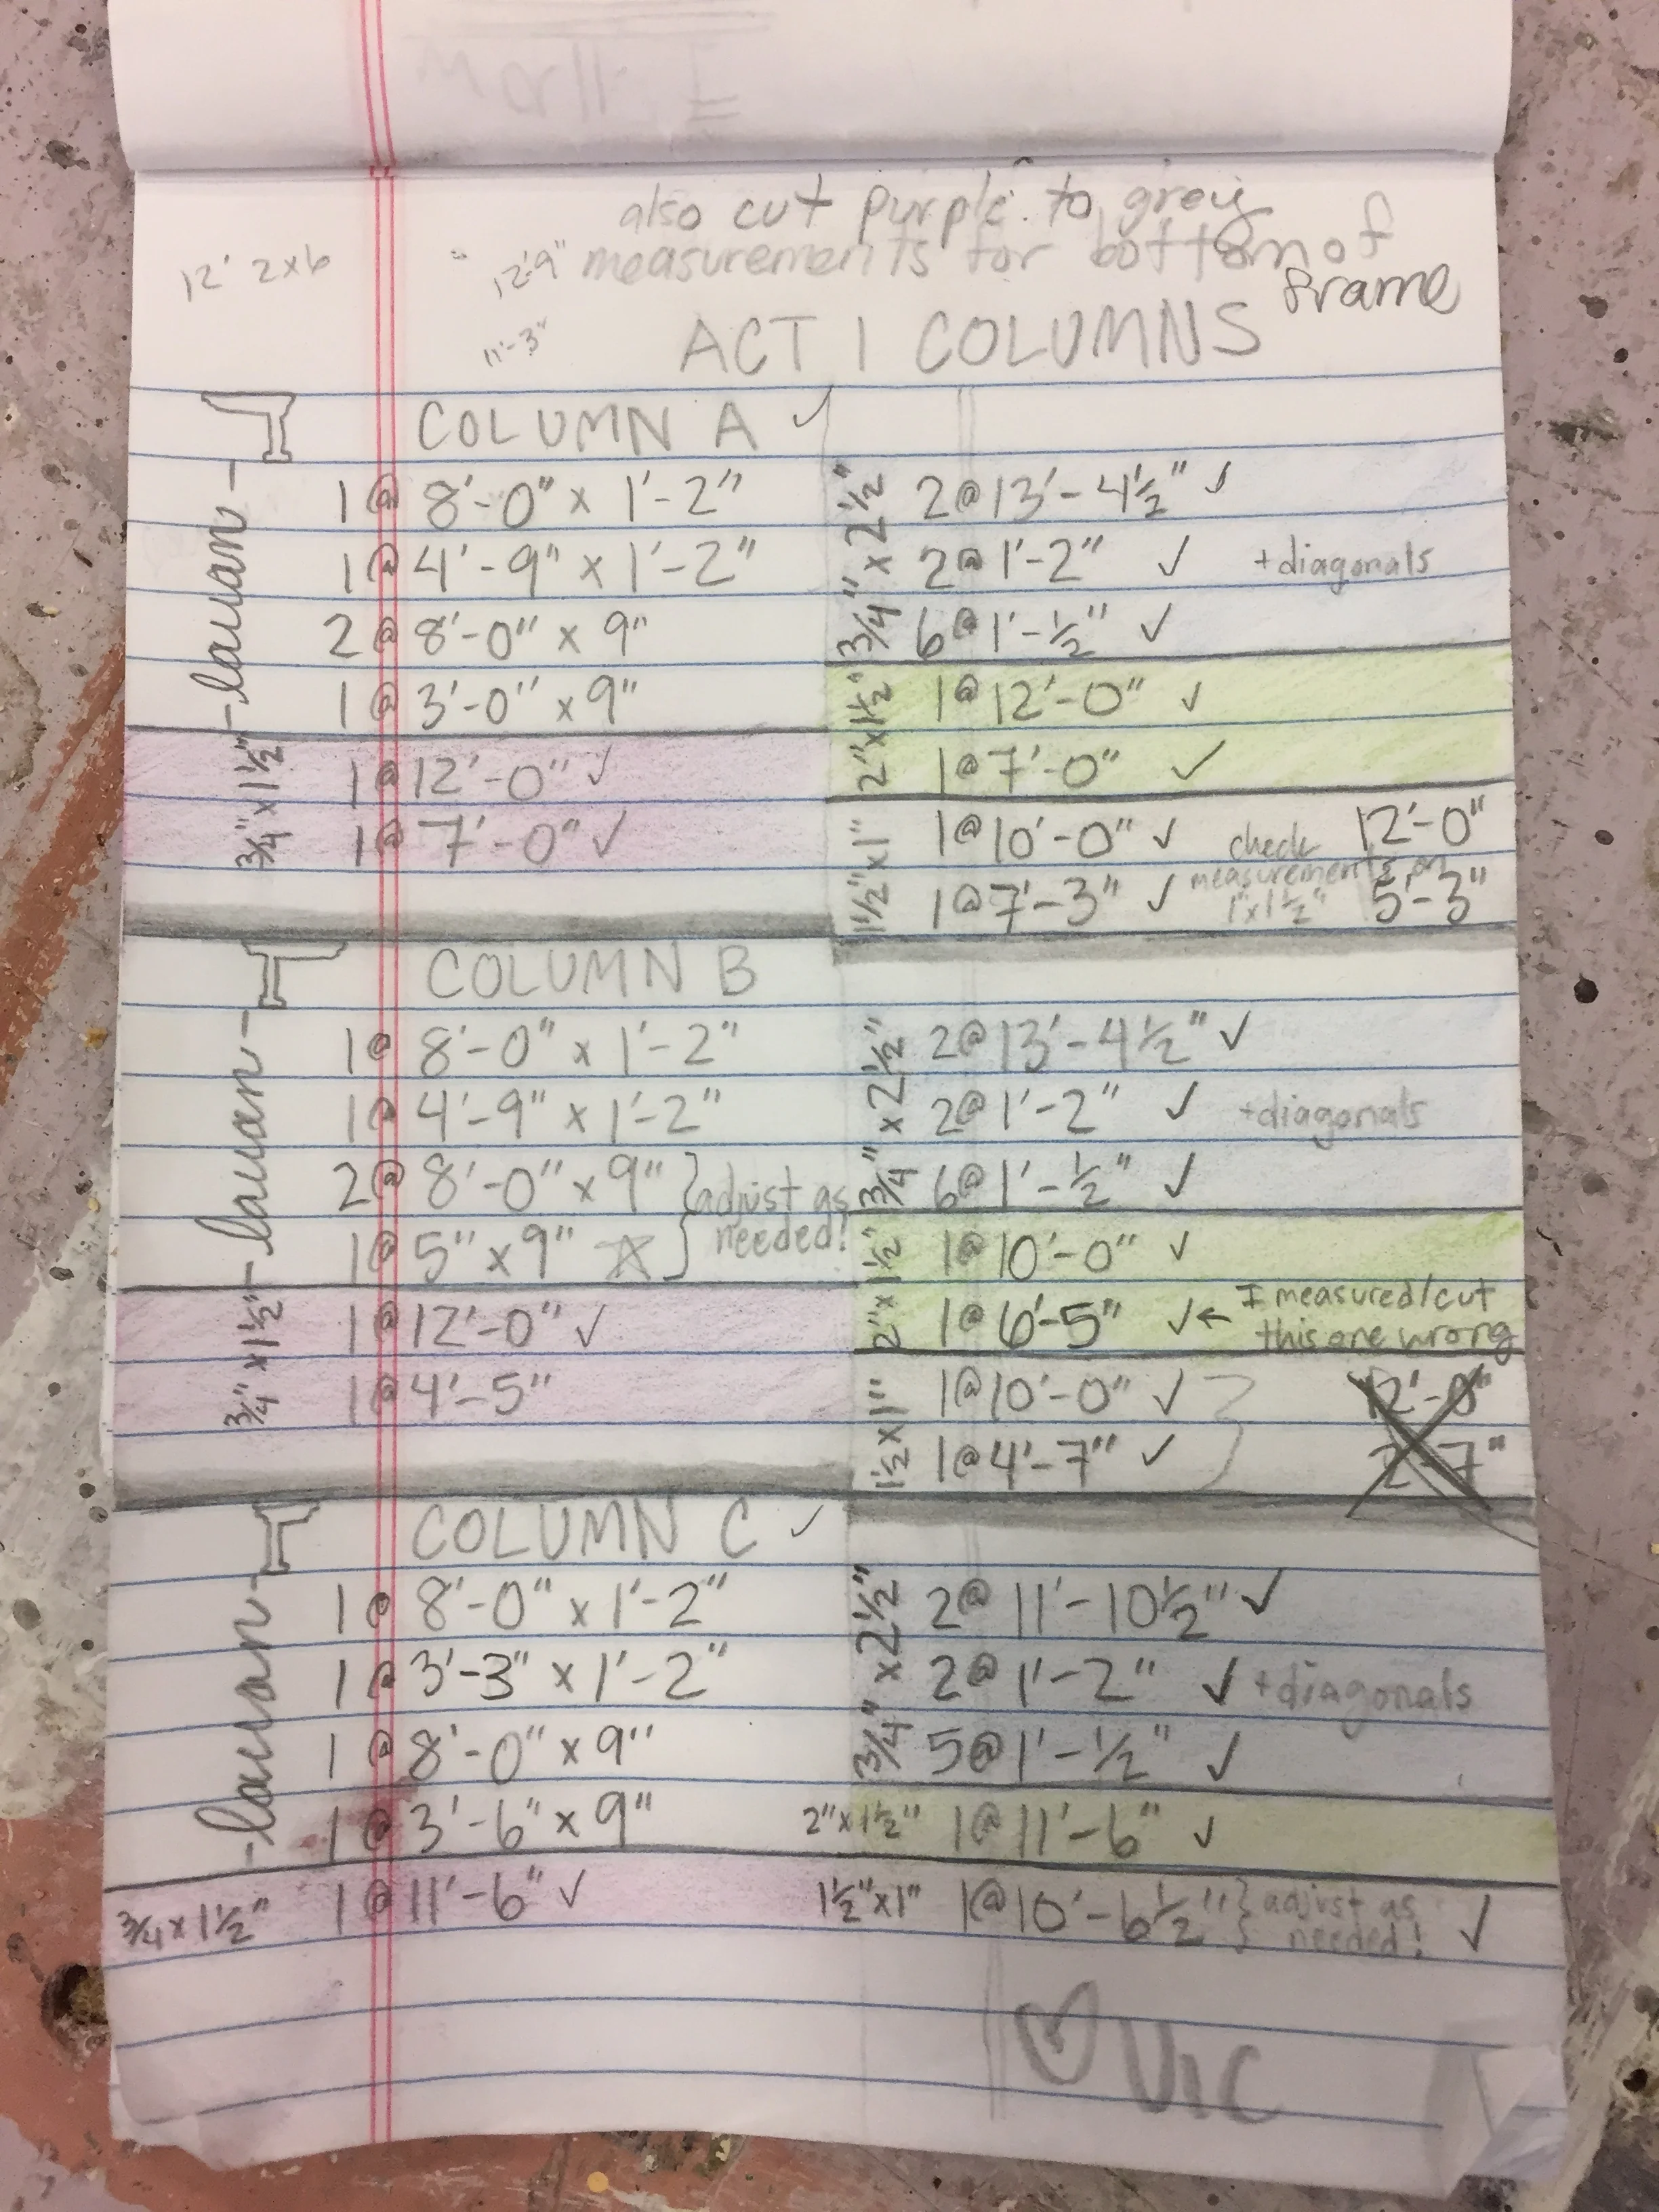 I wall
also cut purple to grey
12' 2x6
12'-9" measurements for bottom of
frame
11'-3"
ACT 1 COLUMNS
COLUMN A ✓
lauan
1 @ 8'-0" x 1'-2"
1 @ 4'-9" x 1'-2"
2 @ 8'-0" x 9"
1 @ 3'-0" x 9"
3/4" x 1 1/2"
1 @ 12'-0" ✓
1 @ 7'-0" ✓
3/4" x 2 1/2"
2 @ 13'-4 1/2" ✓
2 @ 1'-2" ✓ + diagonals
6 @ 1'-1/2" ✓
2" x 1 1/2"
1 @ 12'-0" ✓
1 @ 7'-0" ✓
1 1/2" x 1"
1 @ 10'-0" ✓ 12'-0"
1 @ 7'-3" ✓ 5'-3"
check
measurements on
1"x1 1/2"
COLUMN B
lauan
1 @ 8'-0" x 1'-2"
1 @ 4'-9" x 1'-2"
2 @ 8'-0" x 9"
1 @ 5" x 9" ☆
} adjust as
needed!
3/4" x 1 1/2"
1 @ 12'-0" ✓
1 @ 4'-5"
3/4" x 2 1/2"
2 @ 13'-4 1/2" ✓
2 @ 1'-2" ✓ + diagonals
6 @ 1'-1/2" ✓
2" x 1 1/2"
1 @ 10'-0" ✓
1 @ 6'-5" ✓ ← I measured/cut
this one wrong
1 1/2 x 1"
1 @ 10'-0" ✓ 12'-0"
1 @ 4'-7" ✓ 2'-7"
COLUMN C ✓
lauan
1 @ 8'-0" x 1'-2"
1 @ 3'-3" x 1'-2"
1 @ 8'-0" x 9"
1 @ 3'-6" x 9"
3/4 x 1 1/2"
1 @ 11'-6" ✓
3/4" x 2 1/2"
2 @ 11'-10 1/2" ✓
2 @ 1'-2" ✓ + diagonals
5 @ 1'-1/2" ✓
2" x 1 1/2" 1 @ 11'-6" ✓
1 1/2" x 1" 1 @ 10'-6 1/2" } adjust as
needed! ✓
♡ VIC